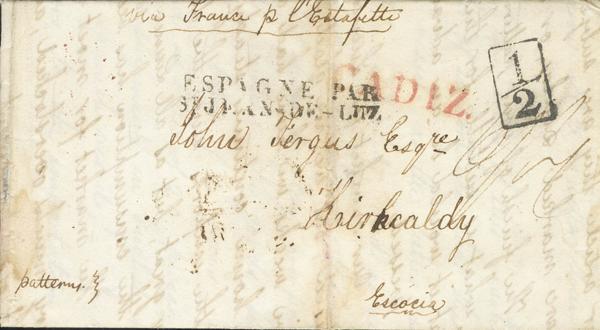 via France p l'Estafette
ESPAGNE PAR
ST JEAN-DE-LUZ
CADIZ.
1/2
John Fergus Esqre
Kirkcaldy
patterns.
Escocia